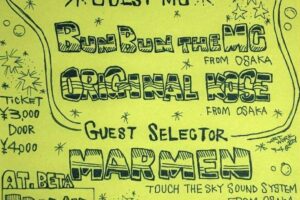 GUEST MC
BUN BUN THE MC
FROM OSAKA
ORIGINAL KOSE
FROM OSAKA
TICKET
¥3,000
DOOR
¥4,000
GUEST SELECTOR
MARMEN
TOUCH THE SKY SOUND SYSTEM
FROM OSAKA
AT. BETA